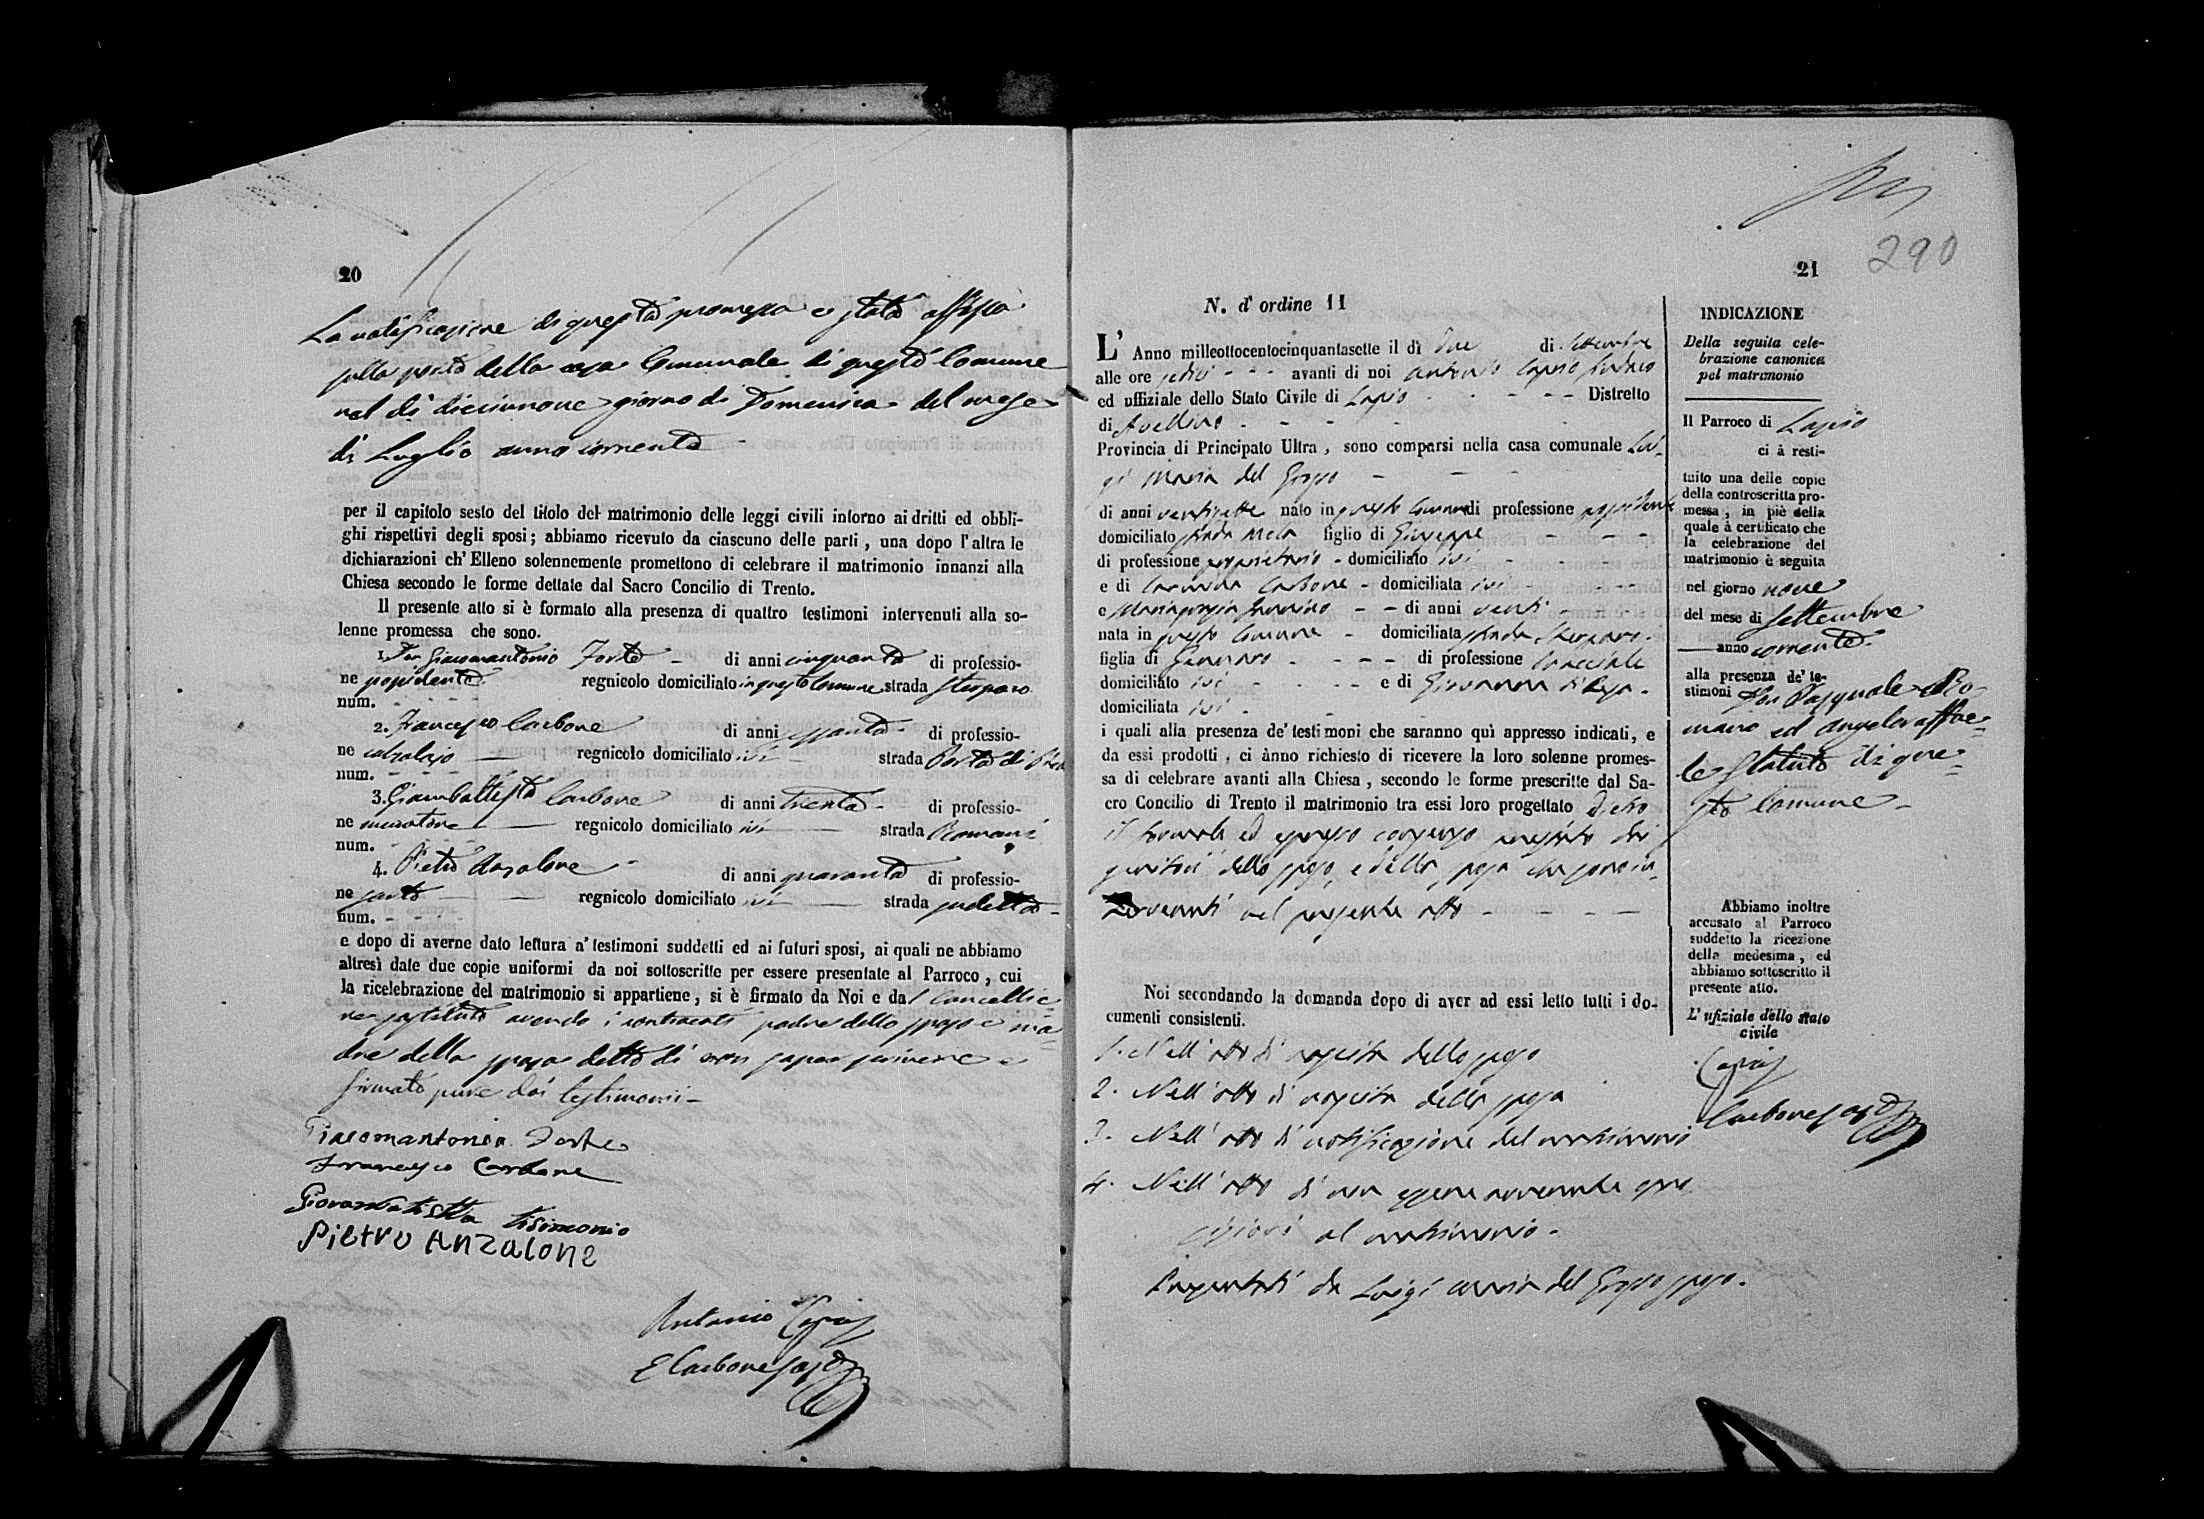 20
La notificazione di questa promessa è stata affissa
sulla porta della casa Comunale di questo Comune
nel dì diciannove giorno di Domenica del mese
di Luglio anno corrente
per il capitolo sesto del titolo del matrimonio delle leggi civili intorno ai dritti ed obbli-
ghi rispettivi degli sposi; abbiamo ricevuto da ciascuno delle parti, una dopo l'altra le
dichiarazioni ch'Elleno solennemente promettono di celebrare il matrimonio innanzi alla
Chiesa secondo le forme dettate dal Sacro Concilio di Trento.
Il presente atto si è formato alla presenza di quattro testimoni intervenuti alla so-
lenne promessa che sono.
1. Don Giacomantonio Forte di anni cinquanta di professio-
ne possidente regnicolo domiciliato in questo Comune strada Sterparo
num.
2. Francesco Carbone di anni di professio-
ne calzolajo regnicolo domiciliato ivi strada Porta di
num.
3. Giambattista Carbone di anni trenta di professio-
ne muratore regnicolo domiciliato ivi strada Romani
num.
4. Pietro Anzalone di anni quaranta di professio-
ne sarto regnicolo domiciliato ivi strada
num.
e dopo di averne dato lettura a' testimoni suddetti ed ai futuri sposi, ai quali ne abbiamo
altresì date due copie uniformi da noi sottoscritte per essere presentate al Parroco, cui
la ricelebrazione del matrimonio si appartiene, si è firmato da Noi e dal Cancellie
re sostituto avendo i contraenti padre dello sposo e ma=
dre della sposa detto di non saper scrivere e
firmato pure dai testimonii
Giacomantonio Forte
Francesco Carbone
Giovambatista tisimonio
Pietro Anzalone
Antonio Caprio
E Carbone sosto
290
21
N. d'ordine 11
L'Anno milleottocentocinquantasette il dì due di Settembre
alle ore sedici avanti di noi Antonio Caprio Sindaco
ed uffiziale dello Stato Civile di Lapio Distretto
di Avellino
Provincia di Principato Ultra, sono comparsi nella casa comunale Lui-
gi Maria del Grosso
di anni ventisette nato in questo Comune di professione possidente
domiciliato strada Mela figlio di Giuseppe
di professione proprietario domiciliato ivi
e di Carbone domiciliata ivi
e Mariagiorgia di anni venti
nata in questo Comune domiciliata strada Sterparo
figlia di Gennaro di professione bracciale
domiciliato ivi e di Giovanna
domiciliata ivi
i quali alla presenza de' testimoni che saranno quì appresso indicati, e
da essi prodotti, ci ànno richiesto di ricevere la loro solenne promes-
sa di celebrare avanti alla Chiesa, secondo le forme prescritte dal Sa-
cro Concilio di Trento il matrimonio tra essi loro progettato dietro
il formale ed espresso consenso prestato dai
genitori dello sposo, e della sposa che sono in-
tervenuti nel presente atto
Noi secondando la domanda dopo di aver ad essi letto tutti i do-
cumenti consistenti.
1. Nell'atto di nascita dello sposo
2. Nell'atto di nascita della sposa
3. Nell'atto di notificazione del matrimonio
4. Nell'atto di non essere avvenute oppo
sizioni al matrimonio.
Presentati da Luigi Maria del Grosso sposo.
INDICAZIONE
Della seguita cele-
brazione canonica
pel matrimonio
Il Parroco di Lapio
ci à resti-
tuito una delle copie
della controscritta pro-
messa, in piè della
quale à certificato che
la celebrazione del
matrimonio è seguita
nel giorno nove
del mese di Settembre
anno corrente
alla presenza de' te-
stimoni Don Pasquale Ro-
mano ed Angelo raffae=
le Statuto di que=
sto Comune
Abbiamo inoltre
accusato al Parroco
suddetto la ricezione
della medesima, ed
abbiamo sottoscritto il
presente atto.
L'ufiziale dello stato
civile
Caprio
Carbone sosto